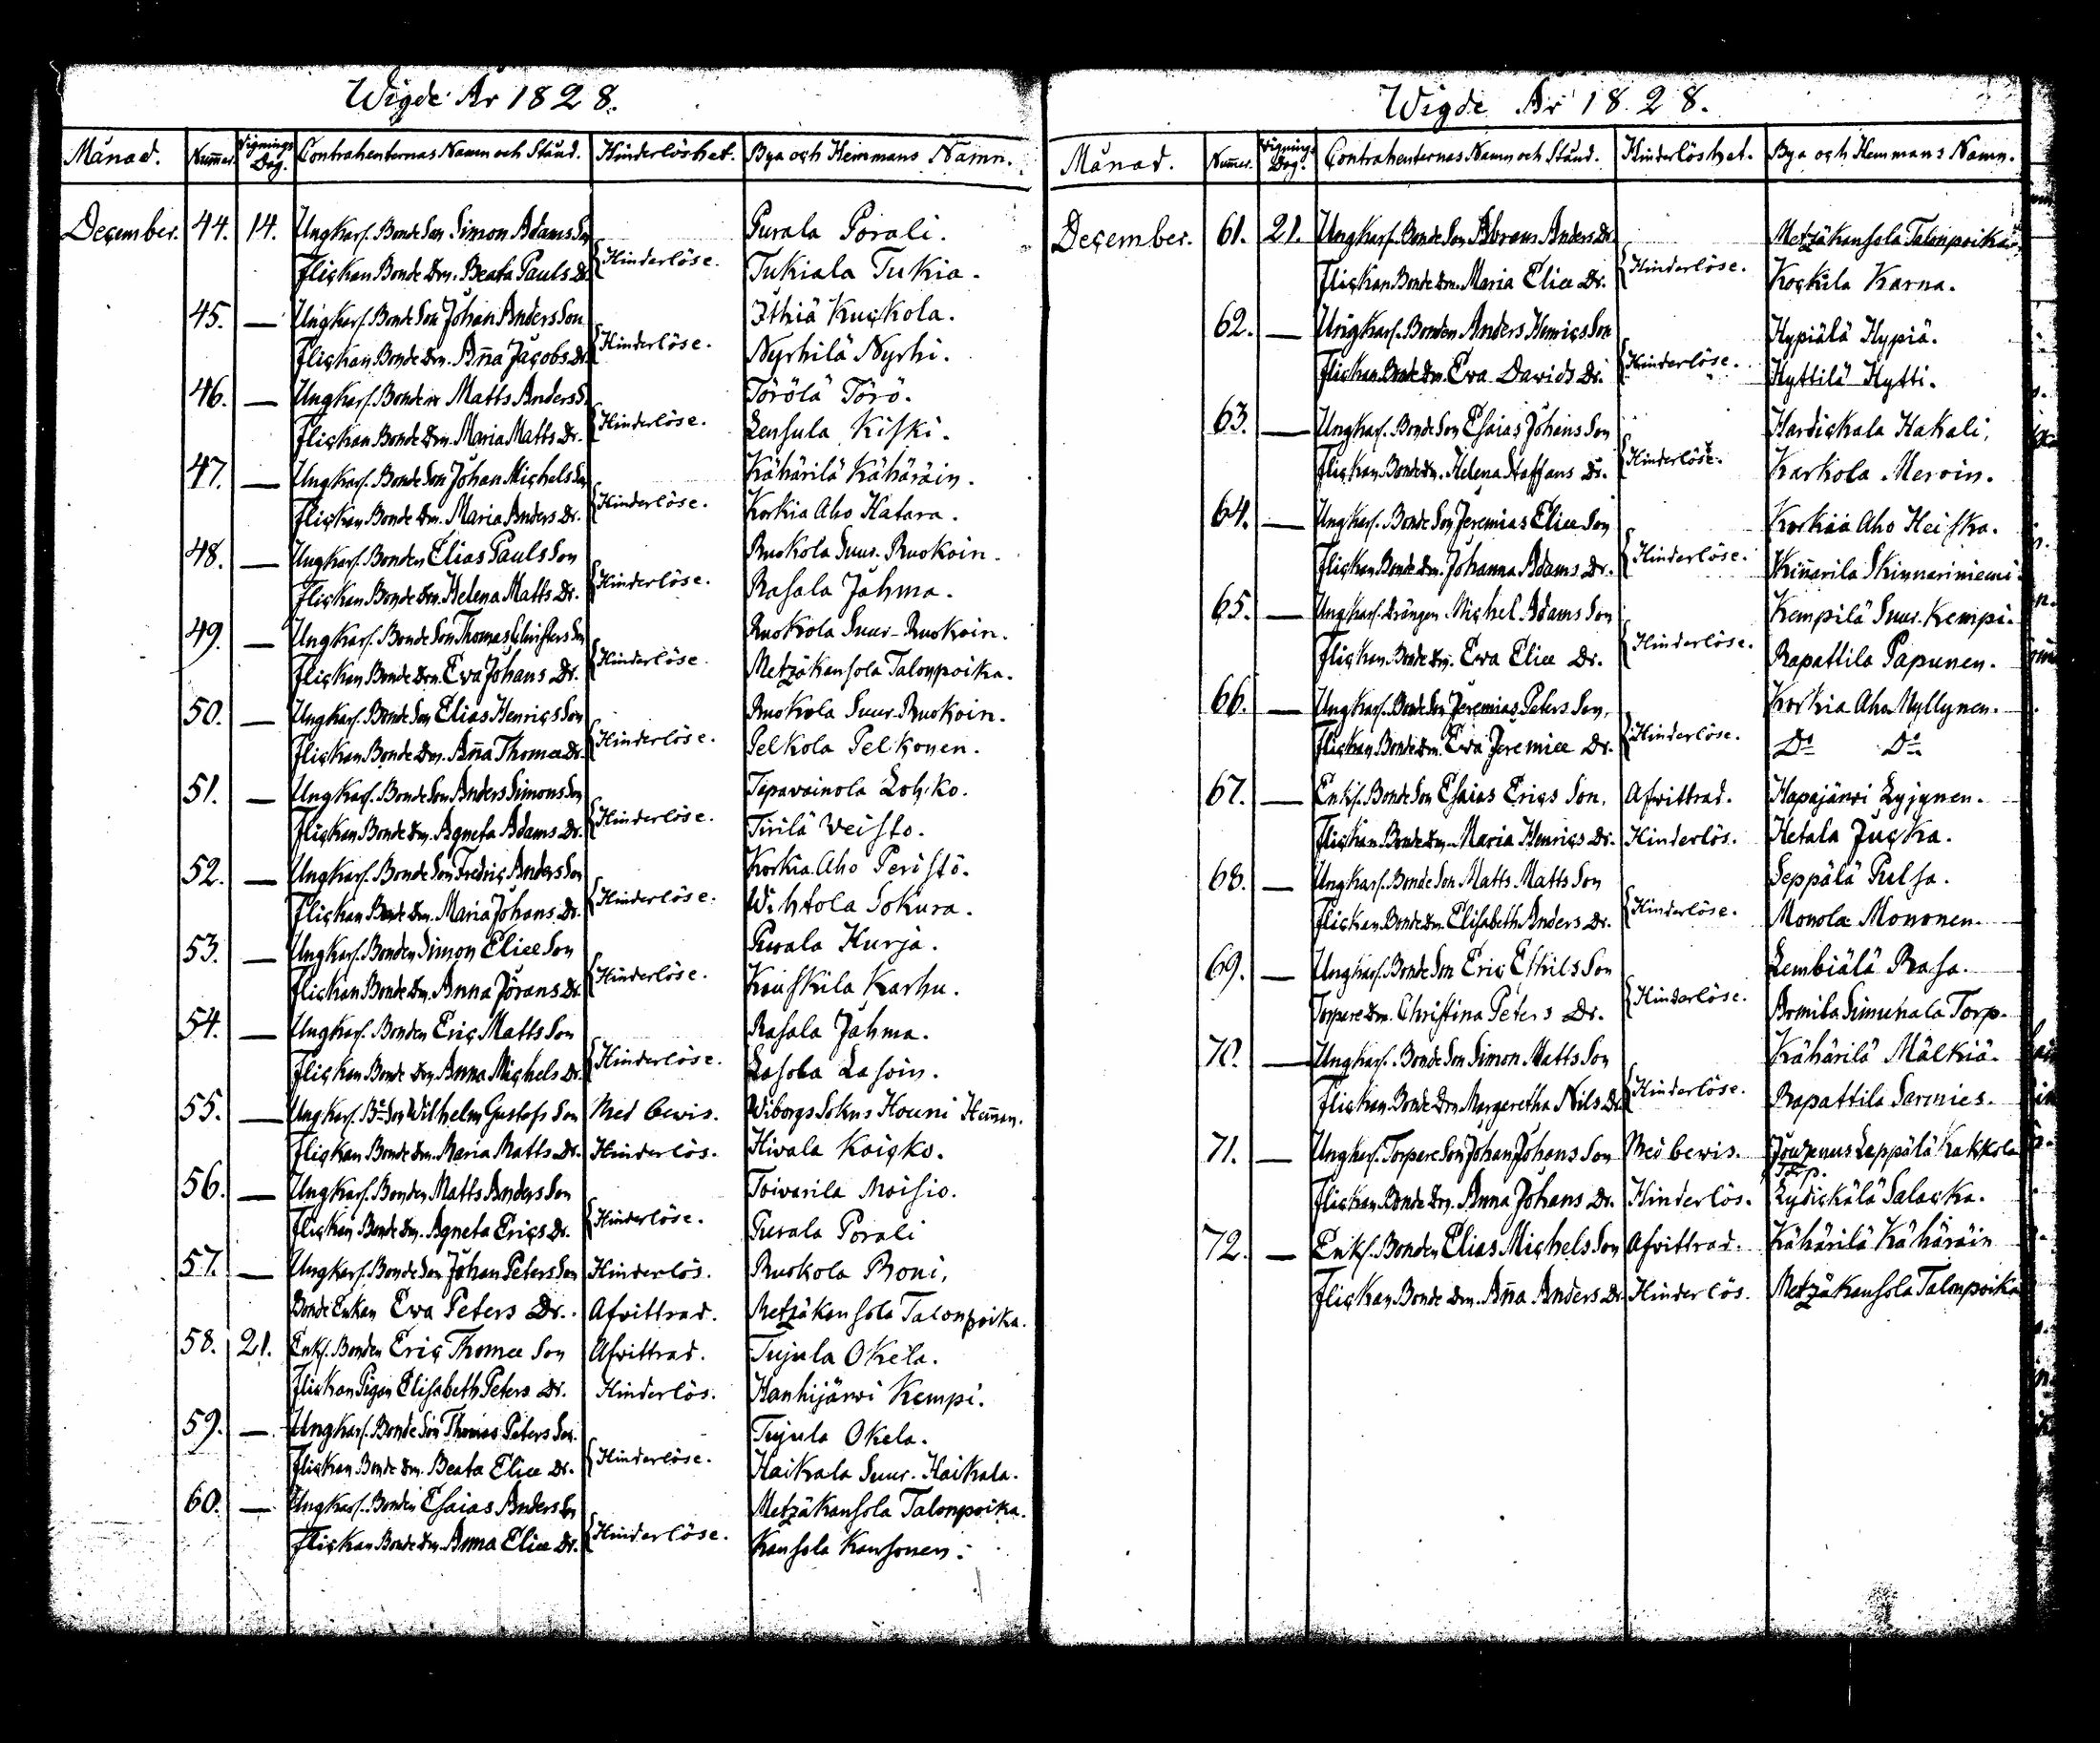 Wigde År 1828.
Månad. Num̃er. Vignings Dag. Contrahenternas Namn och Stånd. Hinderlöshet. Bya och Hemmans Namn.
December. 44. 14. Ungkarl. Bonde Son Simon Adams Son Purala Porali.
Flickan Bonde Drn. Beata Pauls Dr. Hinderlöse. Tukiala Tukia.
45. — Ungkarl. Bonde Son Johan Anders Son Ithiä Kuckola.
Flickan Bonde Drn. Año Jacobs Dr. Hinderlöse. Nyrhilä Nyrhi.
46. — Ungkarl. Bonden Matts Anders S. Törölä Törö.
Flickan Bonde Drn. Maria Matts Dr. Hinderlöse. Lensula Kiski.
47. — Ungkarl. Bonde Son Johan Michels Son Kähärilä Kähäräin.
Flickan Bonde Drn. Maria Anders Dr. Hinderlöse. Korkia Aho Hatara.
48. — Ungkarl. Bonden Elias Pauls Son Ruokola Suur-Ruokoin.
Flickan Bonde Drn. Helena Matts Dr. Hinderlöse. Rasala Jähma.
49. — Ungkarl. Bonde Son Thomas Christers Son Ruokola Suur-Ruokoin.
Flickan Bonde Drn. Eva Johans Dr. Hinderlöse. Metzäkansola Talonpoika.
50. — Ungkarl. Bonde Son Elias Henrics Son Ruokola Suur-Ruokoin.
Flickan Bonde Drn. Aña Thomæ Dr. Hinderlöse. Pelkola Pelkonen.
51. — Ungkarl. Bonde Son Anders Simons Son Tapavainola Lohko.
Flickan Bonde Drn. Agneta Adams Dr. Hinderlöse. Tirilä Veisto.
52. — Ungkarl. Bonde Son Fredric Anders Son Korkia Aho Peristö.
Flickan Bonde Drn. Maria Johans Dr. Hinderlöse. Wihtola Sokura.
53. — Ungkarl. Bonden Simon Eliæ Son Purala Kurja.
Flickan Bonde Drn. Anna Jörans Dr. Hinderlöse. Kauskila Karhu.
54. — Ungkarl. Bonden Eric Matts Son Rasala Jahma.
Flickan Bonde Drn. Anna Michels Dr. Hinderlöse. Lasola Lasoin.
55. — Ungkarl. Bde Son Wilhelm Gustafs Son Med bewis. Wiborgs Sokns Houni Hem̃an.
Flickan Bonde Drn. Maria Matts Dr. Hinderlös. Hivala Kaicko.
56. — Ungkarl. Bonden Matts Anders Son Toivarila Moisio.
Flickan Bonde Drn. Agneta Erics Dr. Hinderlöse. Purala Porali
57. — Ungkarl. Bonde Son Johan Peters Son Hinderlös. Ruokola Roni.
Bonde Enkan Ewa Peters Dr. Afvittrad. Metzäkansola Talonpoika.
58. 21. Enkl. Bonden Eric Thomæ Son Afvittrad. Tujula Okela.
Flickan Pigan Elisabeth Peters Dr. Hinderlös. Hanhijärvi Kempi.
59. — Ungkarl. Bonde Son Thomas Peters Son. Tujula Okela.
Flickan Bonde Drn. Beata Eliæ Dr. Hinderlöse. Haikala Suur-Haikala.
60. — Ungkarl. Bonden Esaias Anders Son Metzäkansola Talonpoika.
Flickan Bonde Drn. Anna Eliæ Dr. Hinderlöse. Kansola Kansonen.
Wigde År 1828.
Månad. Num̃er. Vignings Dag. Contrahenternas Namn och Stånd. Hinderlöshet. Bya och Hemmans Namn.
December. 61. 21. Ungkarl. Bonde Son Abram Anders Dr. Metzäkansola Talonpoika.
Flickan Bonde Drn. Maria Eliæ Dr. Hinderlöse. Kockila Karna.
62. — Ungkarl. Bonden Anders Henrics Son Hypiälä Hypiä.
Flickan Bonde Drn. Eva Davids Dr. Hinderlöse. Hyttilä Hytti.
63. — Ungkarl. Bonde Son Esaias Johans Son Hardickala Hakali.
Flickan Bonde Drn. Helena Staffans Dr. Hinderlöse. Karkola Heroin.
64. — Ungkarl. Bonde Son Jeremias Eliæ Son Korkia Aho Heiska.
Flickan Bonde Drn. Johanna Adams Dr. Hinderlöse. Skiñarila Skinnariniemi.
65. — Ungkarl. Drängen Michel Adams Son Kempilä Suur-Kempi.
Flickan Bonde Drn. Ewa Eliæ Dr. Hinderlöse. Rapattila Papunen.
66. — Ungkarl. Bonde Son Jeremias Peters Son. Korkia Aho Myllynen.
Flickan Bonde Drn. Ewa Jeremiæ Dr. Hinderlöse. Do Do
67. — Enkl. Bonde Son Esaias Erics Son. Afvittrad. Hapajärvi Lyijynen.
Flickan Bonde Drn. Maria Henrics Dr. Hinderlös. Hetala Jucka.
68. — Ungkarl. Bonde Son Matts Matts Son Seppälä Pulsa.
Flickan Bonde Drn. Elisabeth Anders Dr. Hinderlöse. Monola Mononen.
69. — Ungkarl. Bonde Son Eric Eskils Son Lembiälä Rasa.
Torpare Drn. Christina Peters Dr. Hinderlöse. Armila Simuhala Torp.
70. — Ungkarl. Bonde Son Simon Matts Son Kähärilä Mälkiä.
Flickan Bonde Drn Margaretha Nils Dr. Hinderlöse. Rapattila Sarmies.
71. — Ungkarl. Torpare Son Johan Johans Son Med bewis. Jouzenus Leppälä Kakkola Torp.
Flickan Bonde Drn. Anna Johans Dr. Hinderlös. Lydickälä Salacka.
72. — Enkl. Bonden Elias Michels Son Afvittrad. Kähärilä Kähäräin
Flickan Bonde Drn. Aña Anders Dr Hinderlös. Metzäkansola Talonpoika